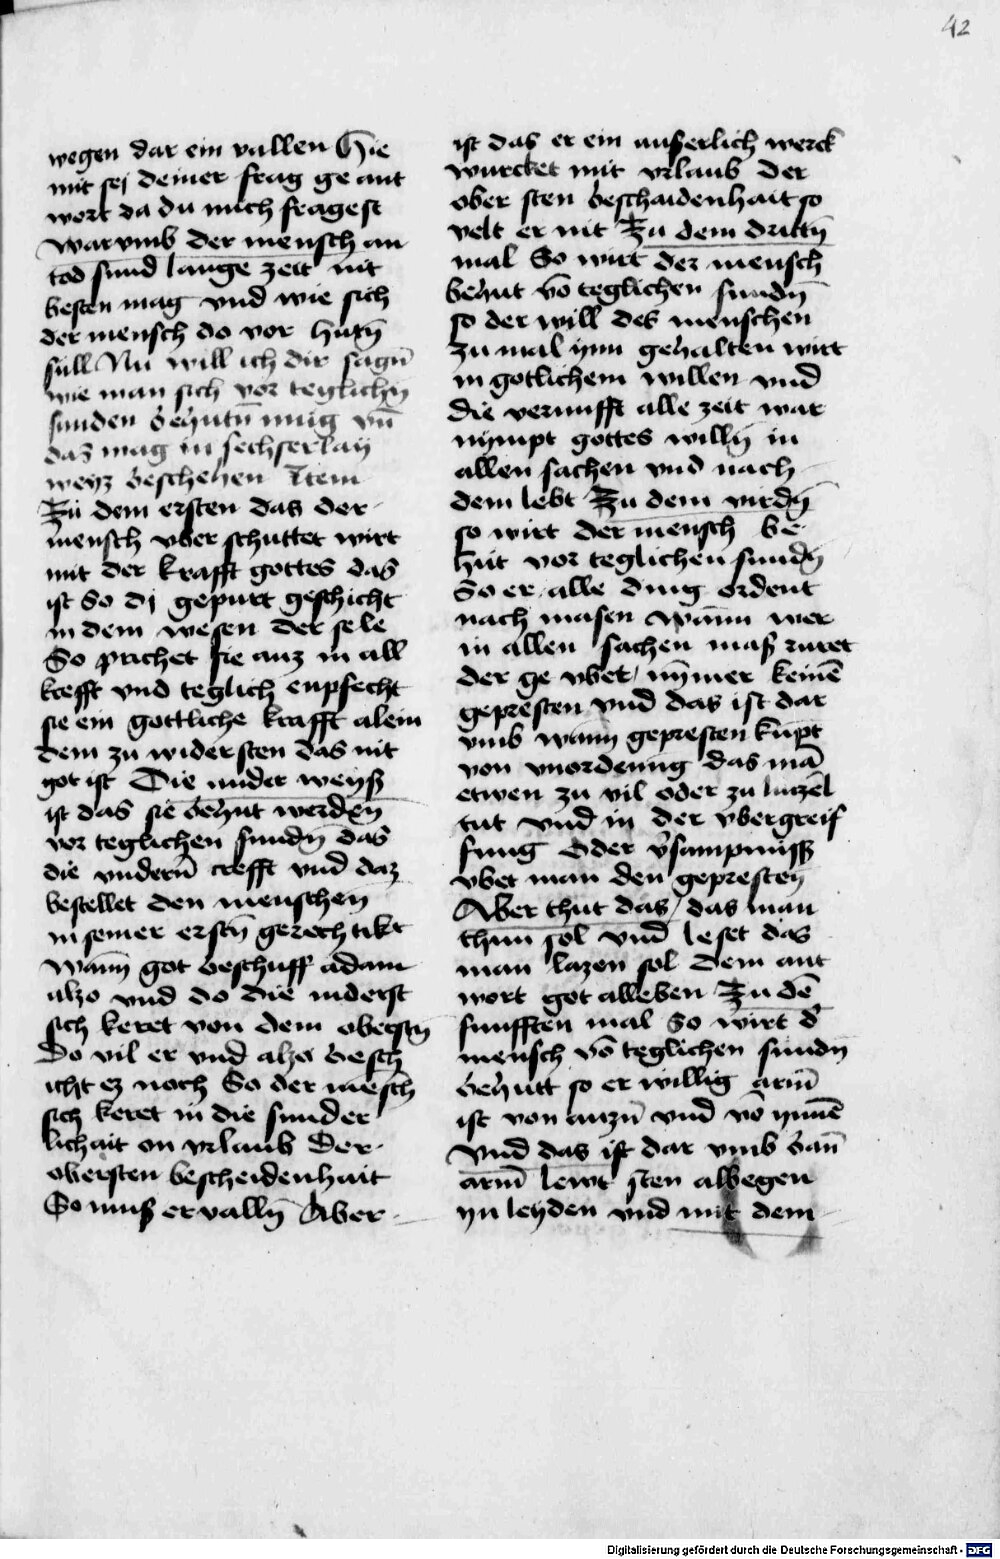 42
wegen dar ein vallen Hie
mit sej deiner frag ge ant
wort da du mich fragest
warvmb der mensch an
tod sund lange zeit nit
besten mag vnd wie sich
der mensch do vor hutn̄
sull Nu will ich dir sagn̄
wie man sich vor teglichn̄
sunden behutn̄ mug vn̄
das mag in sechserlay
weyz beschehen Item
Zu dem ersten das der
mensch vber schuttet wirt
mit der krafft gottes das
ist So dj gepurt geschicht
in dem wesen der sele
So prichet sie auz in all
krefft vnd teglich enpfecht
sie ein gottliche krafft alein
dem zu widersten das nit
got ist Die ander weyß
ist das sie behut werden̄
vor teglichen sundn̄ das
die vndern̄ crefft vnd daz
bestellet den menschen̄
in seiner erstn̄ gerechtikt
wann̄ got beschuff adam
alzo vnd do die niderst
sich keret von dem oberstn̄
Do vil er vnd alzo besch
icht ez noch So der mēsch
sich keret in die sunder
lichait on vrlaub der
obersten bescheidenhait
So muß er valln̄ Aber
ist das er ein außerlich werck
wurcket mit vrlaub der
ober sten beschaidenhait so
velt er nit Zu dem drittn̄
mal So wirt der mensch
behut vō teglichen sundn̄
so der will des menschen
zu mal ynn gehalten wirt
in gotlichem willen vnd
die vernufft alle zeit war
nympt gottes willn̄ in
allen sachen vnd nach
dem lebt Zu dem virdn̄
so wirt der mensch be
hut vor teglichen sundn̄
So er alle ding ordent
nach masen wann̄ wer
in allen sachen maß ruret
der ge vbet nȳmer keinē
gepresten vnd das ist dar
vmb wann̄ gepresten kūpt
von vnordenug das mā
etwen zu vil oder zu luczel
tut vnd in der vbergreif
fung oder v̄sampnuß
vbet man den gepresten̄
Aber thut das / das man
thun sol vnd leset das
man lazen sol dem ant
wort got alleben Zu dē
funfften mal So wirt d̄
mensch vō teglichen sundn̄
behutt so er willig arm̄
ist von auzn̄ vnd vō ynnē
vnd das ist dar vmb wan̄
arm̄ lewt sten albegen
yn leyden vnd mit dem
Digitalisierung gefördert durch die Deutsche Forschungsgemeinschaft - DFG